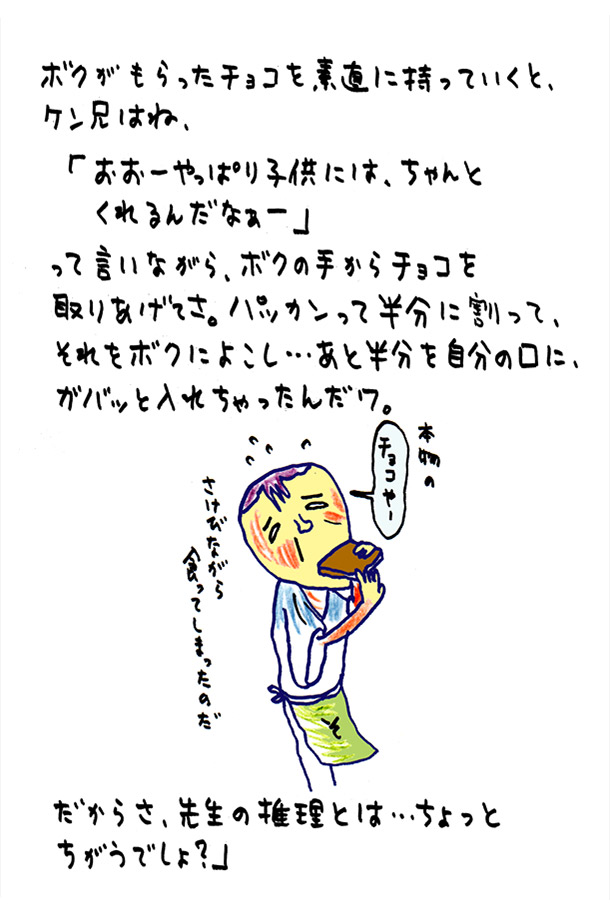 ボクがもらったチョコを素直に持っていくと、
ケン兄はね、
「おおーやっぱり子供には、ちゃんと
くれるんだなぁー」
って言いながら、ボクの手からチョコを
取りあげてさ。パッカンって半分に割って、
それをボクによこし…あと半分を自分の口に、
ガバッと入れちゃったんだワ。
本物の
チョコやー
さけびながら
食ってしまったのだ
そ
だからさ、先生の推理とは…ちょっと
ちがうでしょ？」